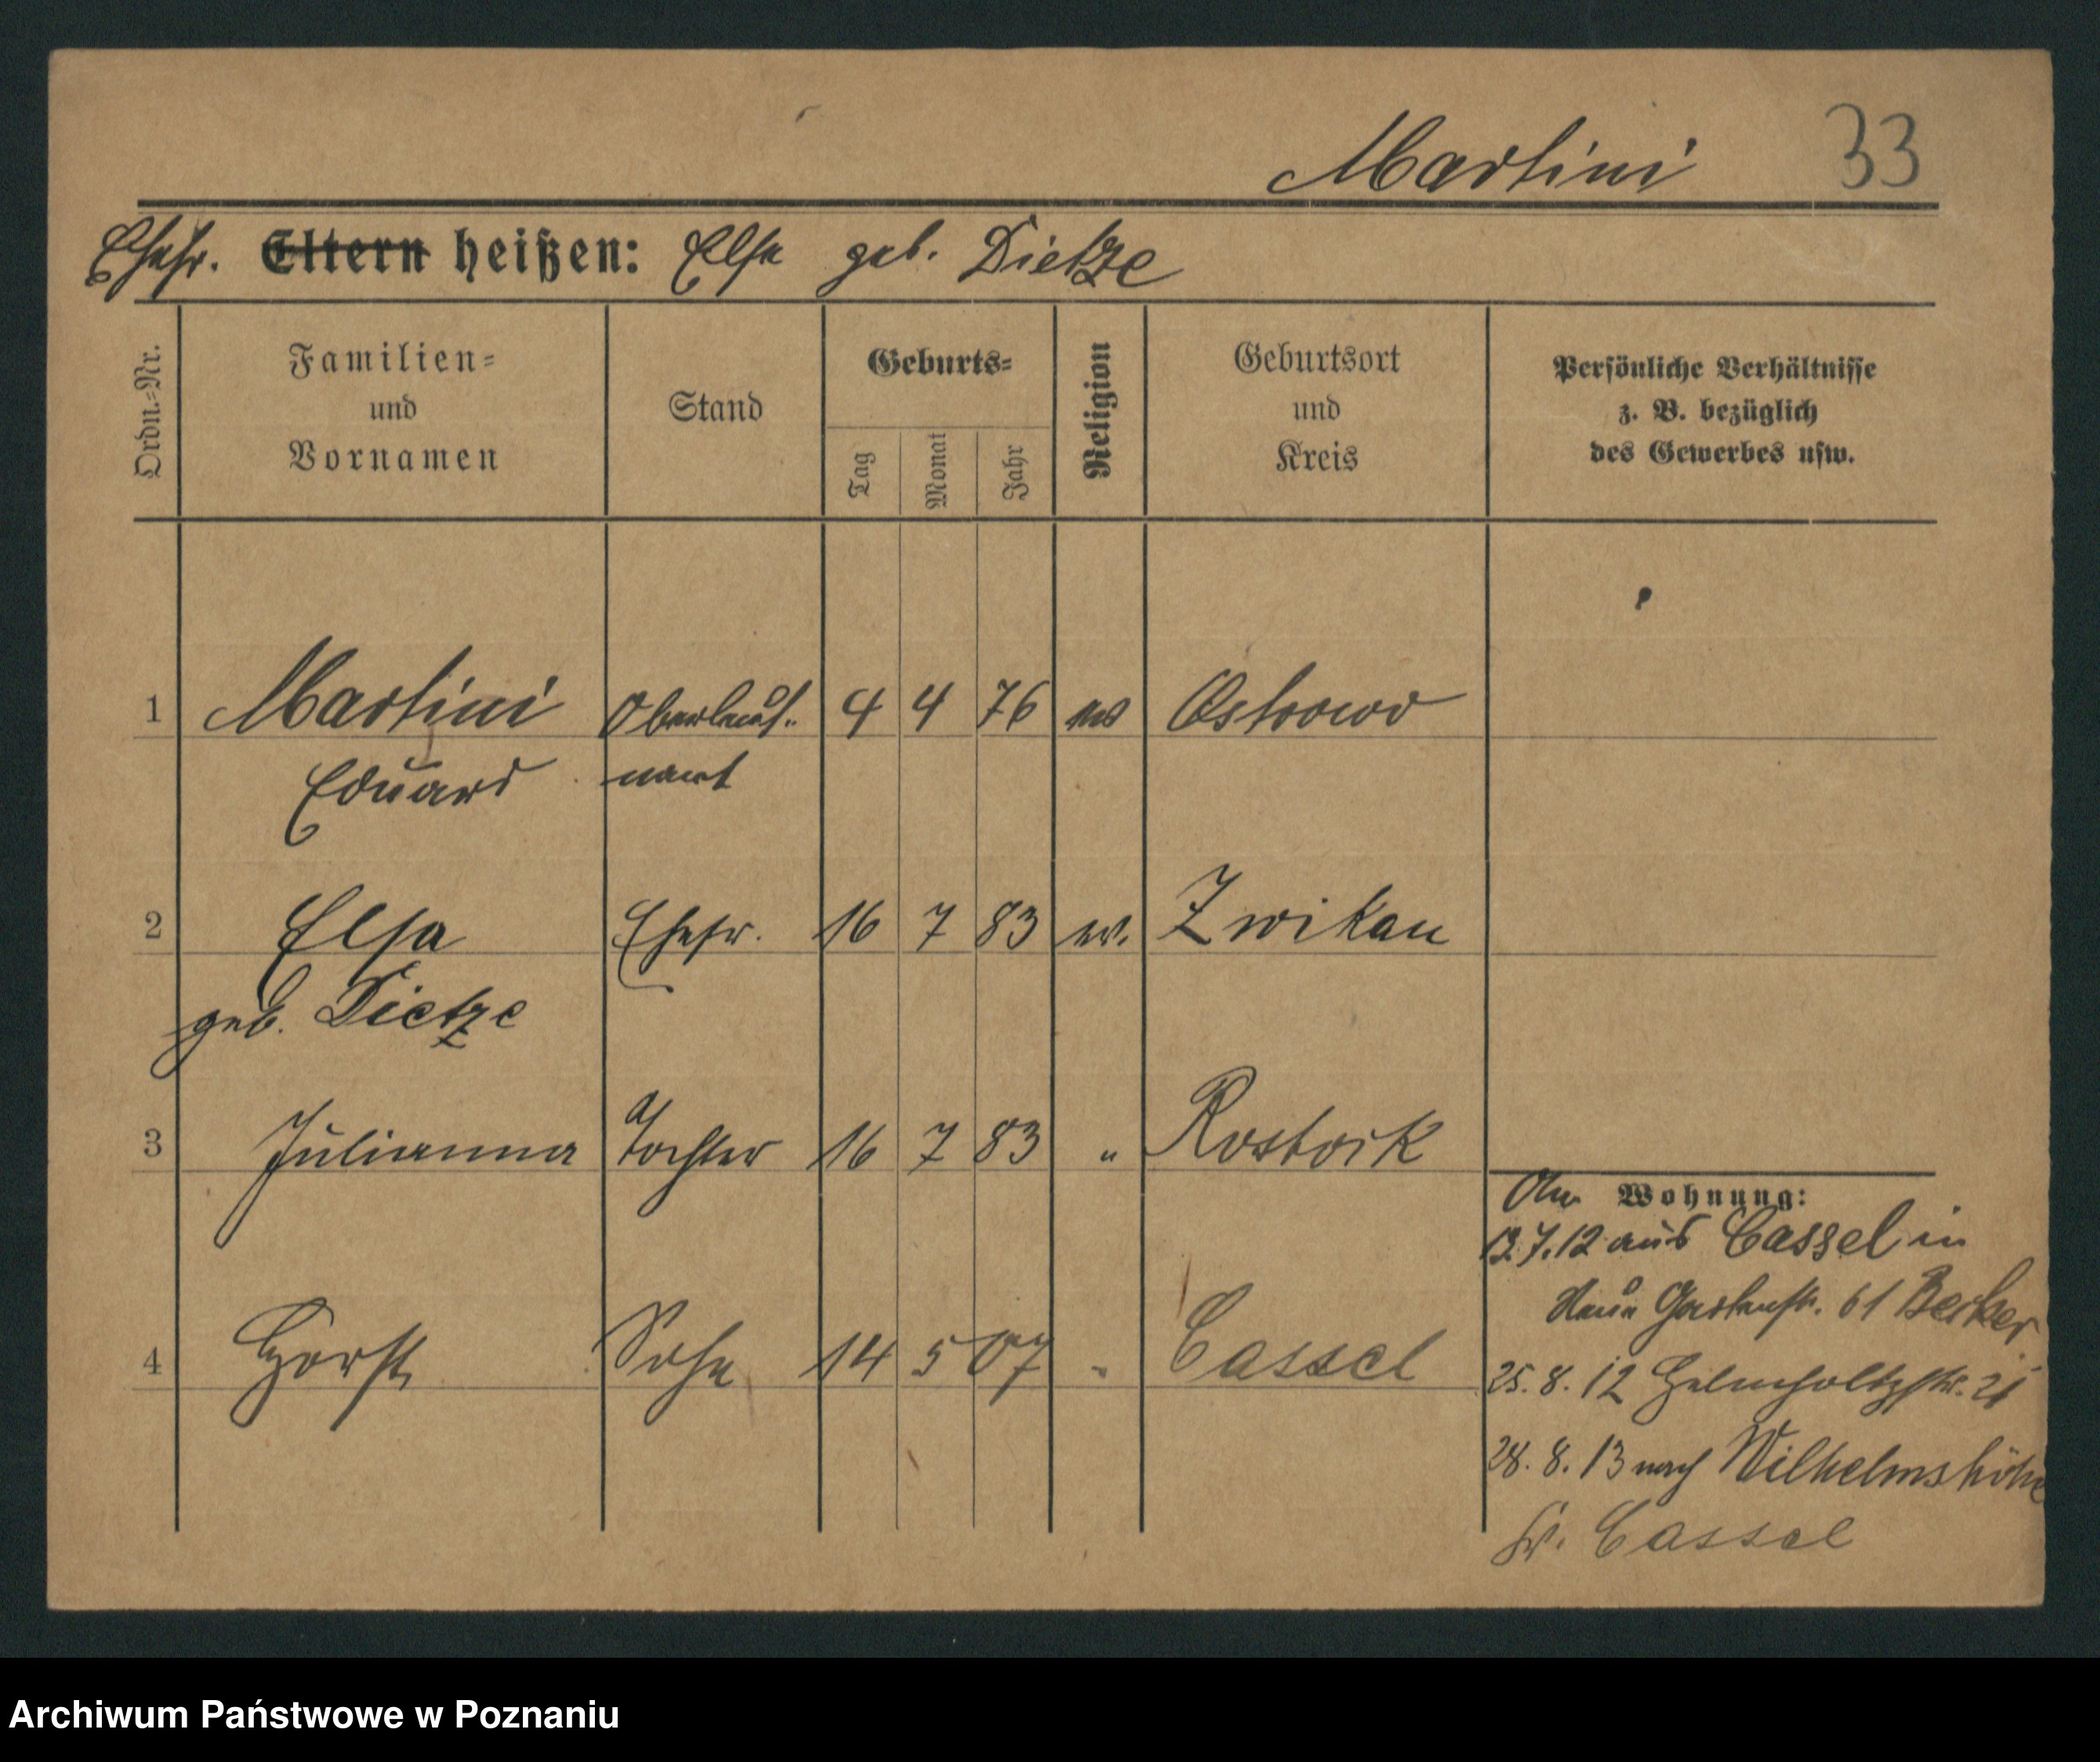 Martini 33
Ehefr. Eltern heißen: Elsa geb. Dietze
Ordn.=Nr.
Familien=
und
Vornamen
Stand
Geburts=
Tag
Monat
Jahr
Religion
Geburtsort
und
Kreis
Persönliche Verhältnisse
z. B. bezüglich
des Gewerbes usw.
1 Martini Oberleut. 4 4 76 ev Ostrowo
Eduard nant
2 Elsa Ehefr. 16 7 83 ev. Zwikau
geb. Dietze
3 Julianna Tochter 16 7 83 " Rostock
Wohnung:
13.7.12 aus Cassel in
Neue Gartenstr. 61 Becker
4 Horst Sohn 14 5 07 " Cassel
25. 8. 12 Helmholtzstr. 21
28. 8. 13 nach Wilhelmshöhe
Kr. Cassel
Archiwum Państwowe w Poznaniu